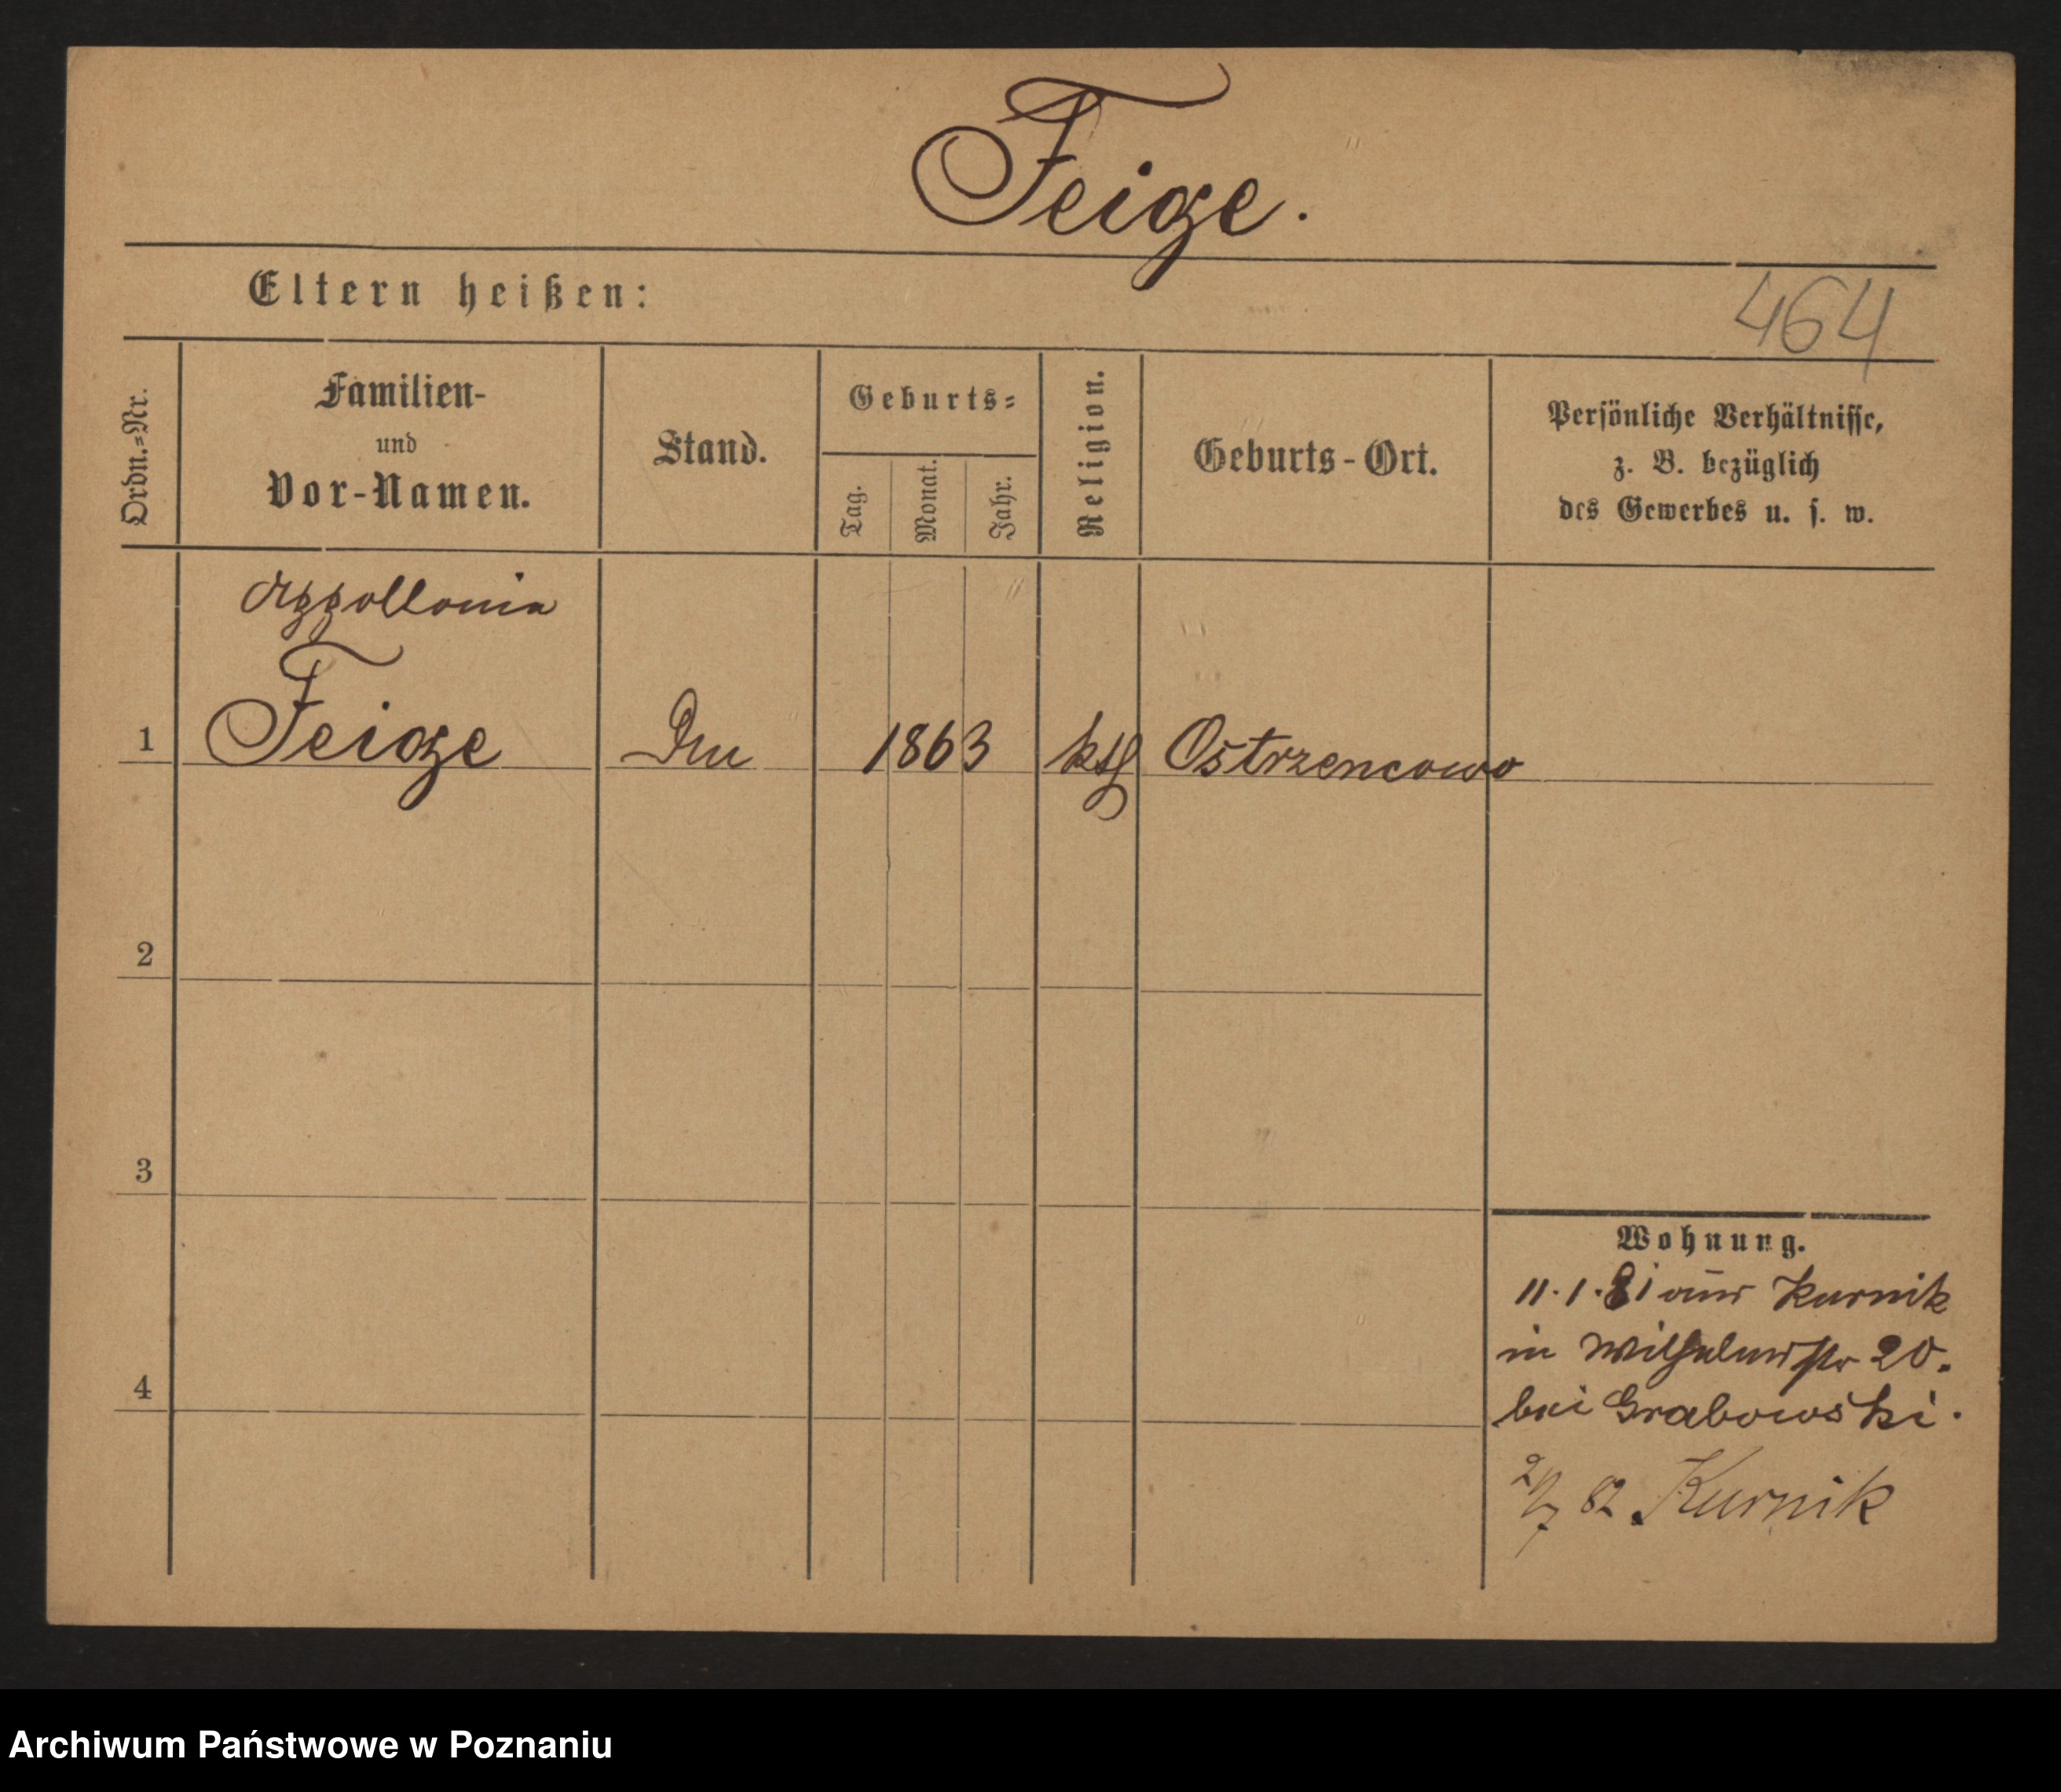 Feige.
Eltern heißen:
464
Ordn.=Nr.
Familien-
und
Vor-Namen.
Stand.
Geburts=
Tag.
Monat.
Jahr.
Religion.
Geburts-Ort.
Persönliche Verhältnisse,
z. B. bezüglich
des Gewerbes u. s. w.
Appollonia
1 Feige 1863 kth Ostrzencowo
2
3
4
Wohnung.
11.1.81 aus Kurnik
in Wilhelmstr 20.
bei Grabowski.
2/7 82. Kurnik
Archiwum Państwowe w Poznaniu